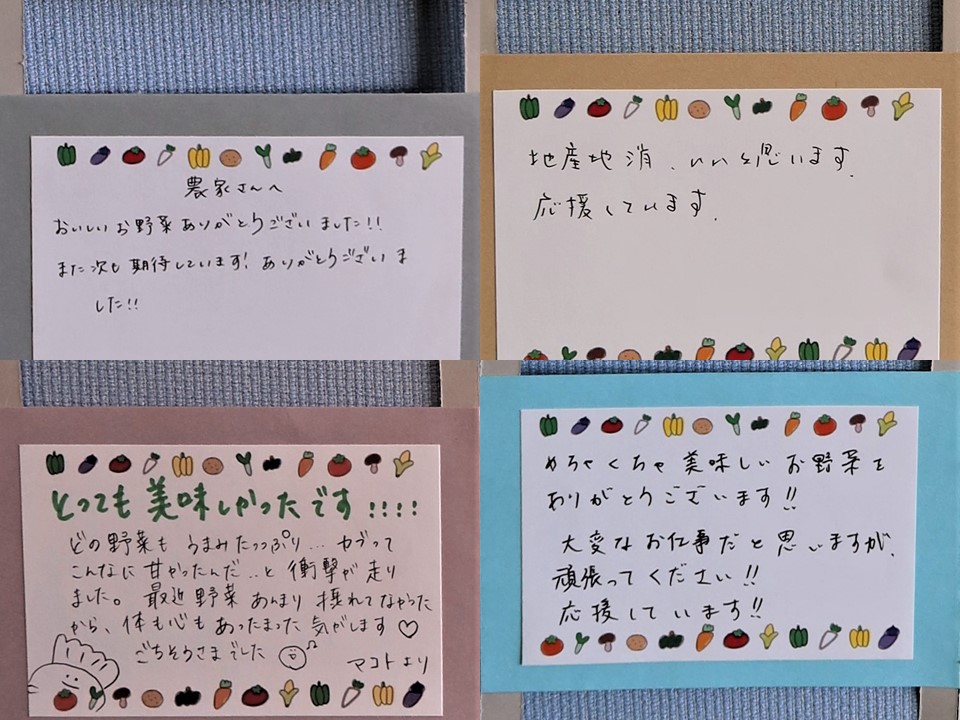 農家さんへ
おいしいお野菜ありがとうございました!!
また次も期待しています! ありがとうございま
した!!
地産地消、いいと思います。
応援しています。
とっても美味しかったです!!!!
どの野菜もうまみたっっぷり… カブって
こんなに甘かったんだ…と衝撃が走り
ました。最近野菜あんまり摂れてなかった
から、体も心もあったまった気がします♡
ごちそうさまでした
マコトより
めちゃくちゃ美味しいお野菜を
ありがとうございます!!
大変なお仕事だと思いますが、
頑張ってください!!
応援しています!!